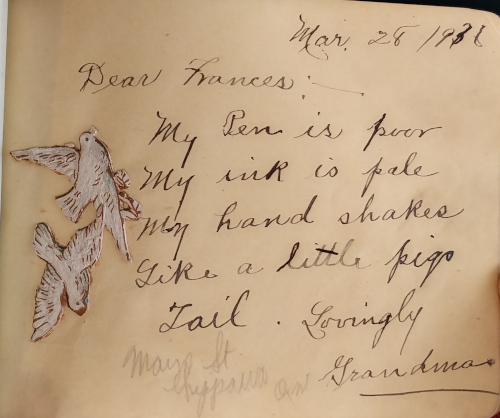 Mar. 28 1936
Dear Frances:—
My Pen is poor
My ink is pale
My hand shakes
Like a little pigs
Tail. Lovingly
Grandma
Main St
Chippawa
On